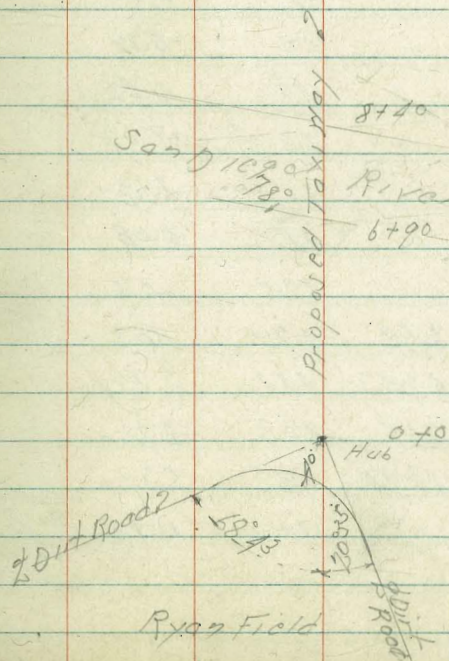 8+40
San Diego River
78°
6+90
Proposed Taxi way
0+0
Hub
70°
¢ Dirt Road
58°43
¢ Dirt Road
Ryan Field